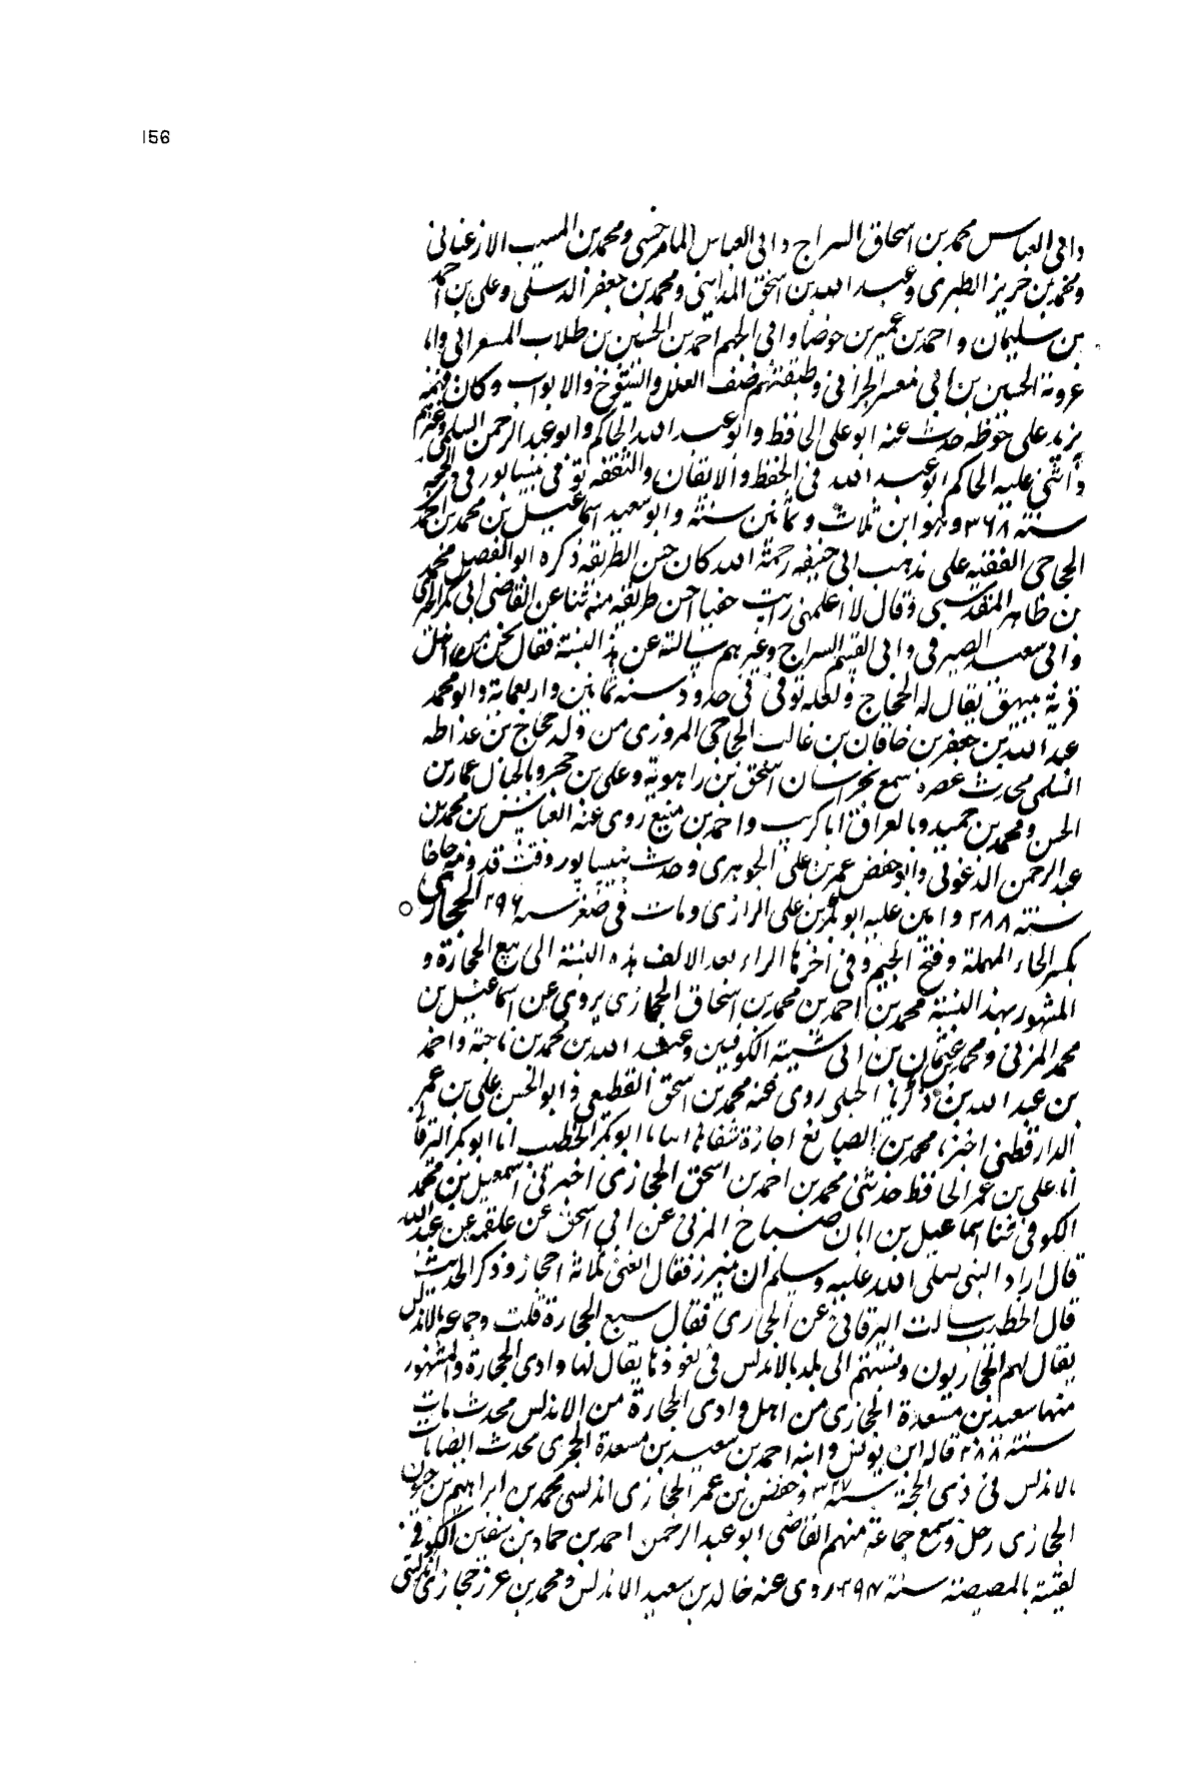 156
وابى العباس محمد بن اسحاق السراج وابى العباس الماسرخسى ومحمد بن المسيب الارغيانى
ومحمد بن جرير الطبرى وعبد الله بن اسحق المداينى ومحمد بن جعفر الدمشقى وعلى بن احمد
بن سليمان واحمد بن عمير بن جوصا وابى الجهم احمد بن الحسين بن طلاب المشغرانى وابا
عروبة الحسين بن ابى معشر الحرانى وطبقتهم صنف العلل والشيوخ والابواب وكان فهمه
يزيد على حفظه حدث عنه ابو على الحافظ وابو عبد الله الحاكم وابو عبد الرحمن السلمى وغيرهم
واثنى عليه الحاكم ابو عبد الله فى الحفظ والاتقان والثقة توفى بنيسابور فى ذى الحجة
سنة ٣٦٨ وهو ابن ثلاث وثمانين سنة وابو سعيد اسماعيل بن محمد بن احمد
الحجاجى الفقيه على مذهب ابى حنيفه رحمة الله كان حسن الطريقة ذكره ابو الفضل محمد
بن طاهر المقدسى وقال لا اعلمنى رايت حنفيا احسن طريقة منه ثنا عن القاضى ابى بكر الحيرى
وابى سعيد الصيرفى وابى القسم السراج وغيرهم سالته عن هذه النسبة فقال نحن من اهل
قرية ببيهق يقال لها حجاج ولعله توفى فى حدود سنة ثمانين واربعمائة وابو محمد
عبد الله بن جعفر بن خاقان بن غالب الحجاجى المروزى من ولد حجاج بن علاط
السلمى محدث عصره سمع بخراسان اسحق بن راهوية وعلى بن حجر وبالجبال عمار بن
الحسن ومحمد بن حميد وبالعراق ابا كريب واحمد بن منيع روى عنه العباس بن محمد بن
عبد الرحمن الدغولى وابو حفص عمر بن على الجوهرى وحدث بنيسابور وقت قدومه حاجا
سنة ٢٨٨ وابن علية ابو بكر بن على الرازى ومات فى صفر سنة ٢٩٦ الحجارى ○
بكسر الحاء المهملة وفتح الجيم وفى اخرها الراء بعد الالف هذه النسبة الى بيع الحجارة و
المشهور بهذا النسبة محمد بن احمد بن محمد بن اسحاق الحجارى يروى عن اسماعيل بن
محمد المزنى ومحمد بن عثمان بن ابى شيبة الكوفيين وعبد الله بن محمد بن ناجية واحمد
بن عبد الله بن ذكريا الجبلى روى عنه محمد بن اسحق القطيعى وابو الحسن على بن عمر
الدارقطنى اخبرنا محمد بن الصايغ اجازة شفاها انبانا ابو بكر الخطيب انا ابو بكر البرقانى
انا على بن عمر الحافظ حدثنى محمد بن احمد بن اسحق الحجارى اخبرنى اسمعيل بن محمد
الكوفى ثنا اسماعيل بن ابان صباح المزنى عن ابى اسحق عن علقمه عن عبد الله
قال اراد النبى صلى الله عليه وسلم ان يتبرز فقال ائتنى بثلاثة احجار وذكر الحديث
قال الخطيب سالت البرقانى عن الحجارى فقال يبيع الحجارة قلت وجماعة بالاندلس
يقال لهم الحجاريون ونسبتهم الى بلد بالاندلس فى ثغورها يقال لها وادى الحجارة والمشهور
منها سعيد بن مسعدة الحجارى من اهل وادى الحجارة من الاندلس محدث مات
سنة ٢٨٨ قاله ابن يونس وابنه احمد بن سعيد بن مسعدة الحجرى محدث ايضا مات
بالاندلس فى ذى الحجة سنة ٣٢٧ وحفص بن عمر الحجارى اندلسى محمد بن ابراهيم بن حيون
الحجارى رحل وسمع جماعة منهم القاضى ابو عبد الرحمن احمد بن حماد بن سفين الكوفى
لقيته بالمصيصة سنة ٢٩٧ روى عنه خالد بن سعيد الاندلس ومحمد بن عزر حجارى اندلسى